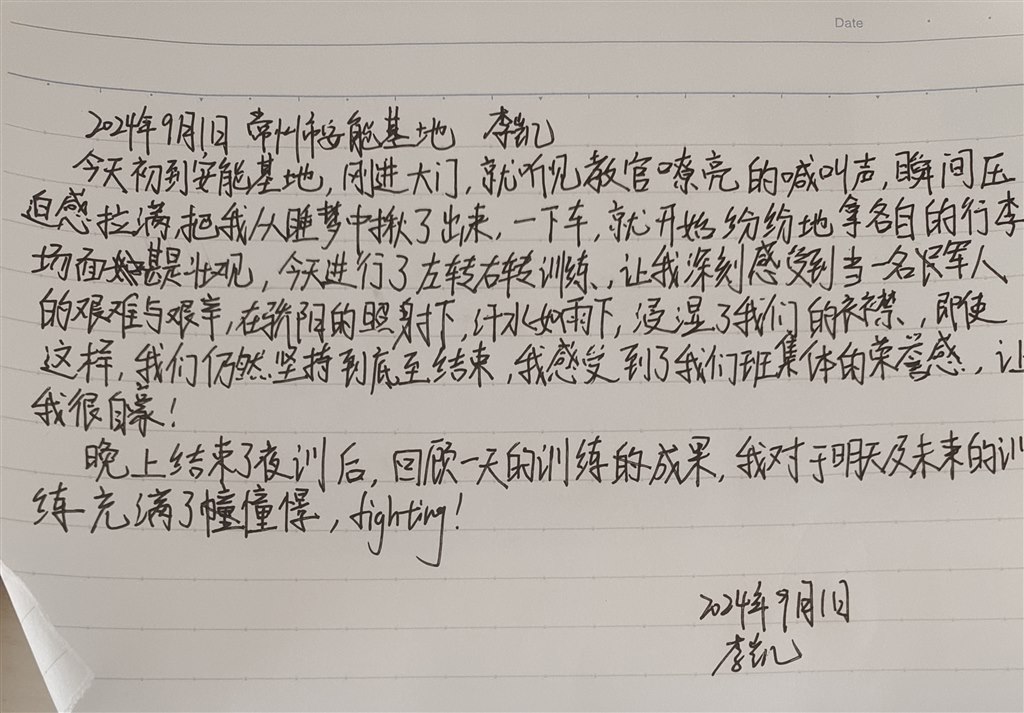 Date
2024年9月1日 常州市安能基地 李凯
今天初到安能基地,刚进大门,就听见教官嘹亮的喊叫声,瞬间压
迫感拉满,把我从睡梦中揪了出来,一下车,就开始纷纷地拿各自的行李
场面甚是壮观,今天进行了左转右转训练,让我深刻感受到当一名军人
的艰难与艰辛,在骄阳的照射下,汗水如雨下,浸湿了我们的衣襟,即使
这样,我们仍然坚持到底至结束,我感受到了我们班集体的荣誉感,让
我很自豪!
晚上结束了夜训后,回顾一天的训练的成果,我对于明天及未来的训
练充满了憧憬,fighting!
2024年9月1日
李凯